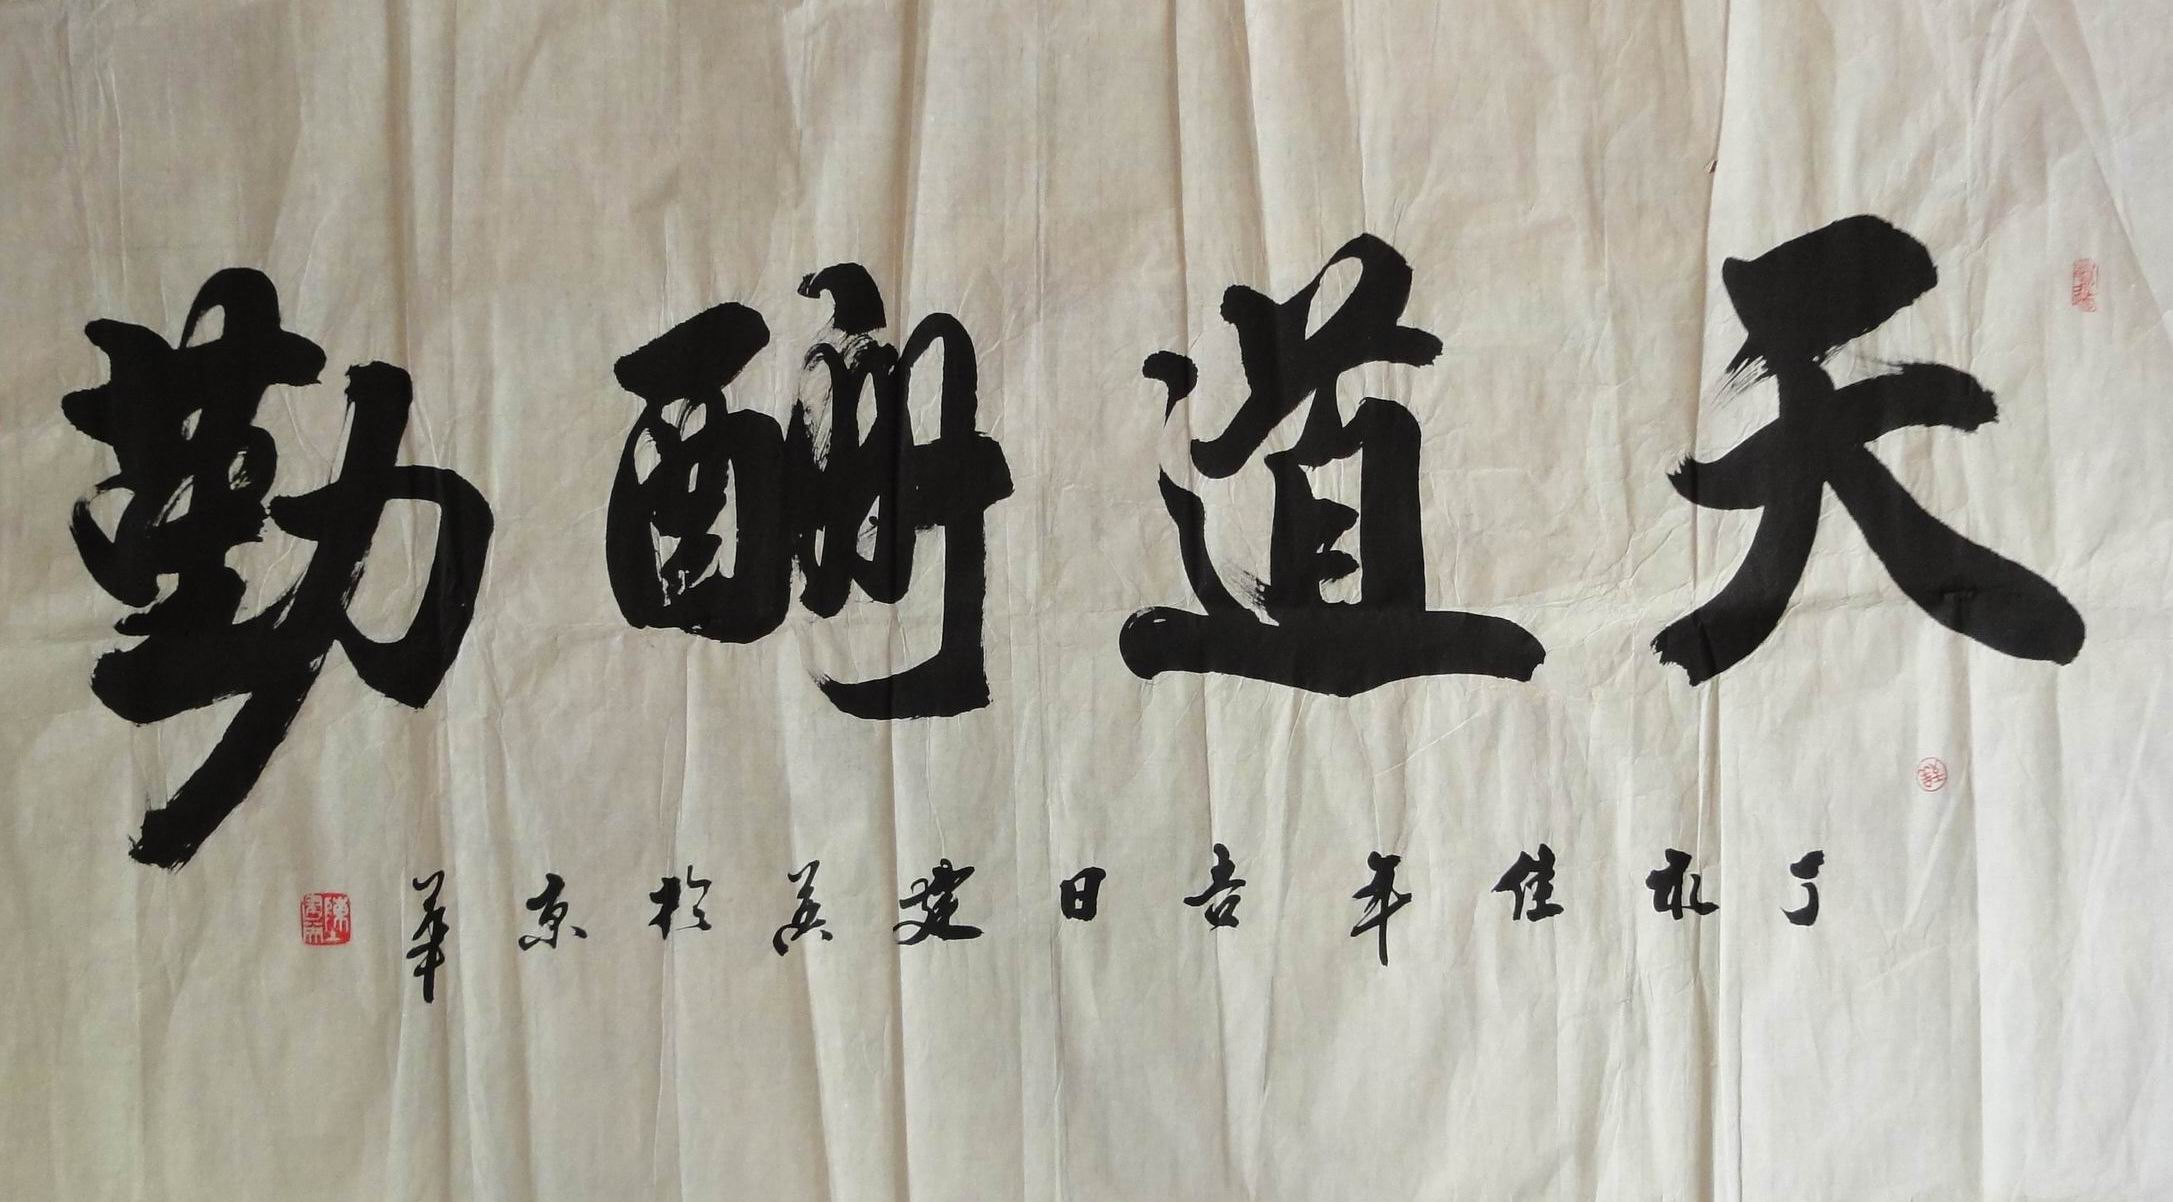 天道酬勤
丁酉佳年吉日建英於京華